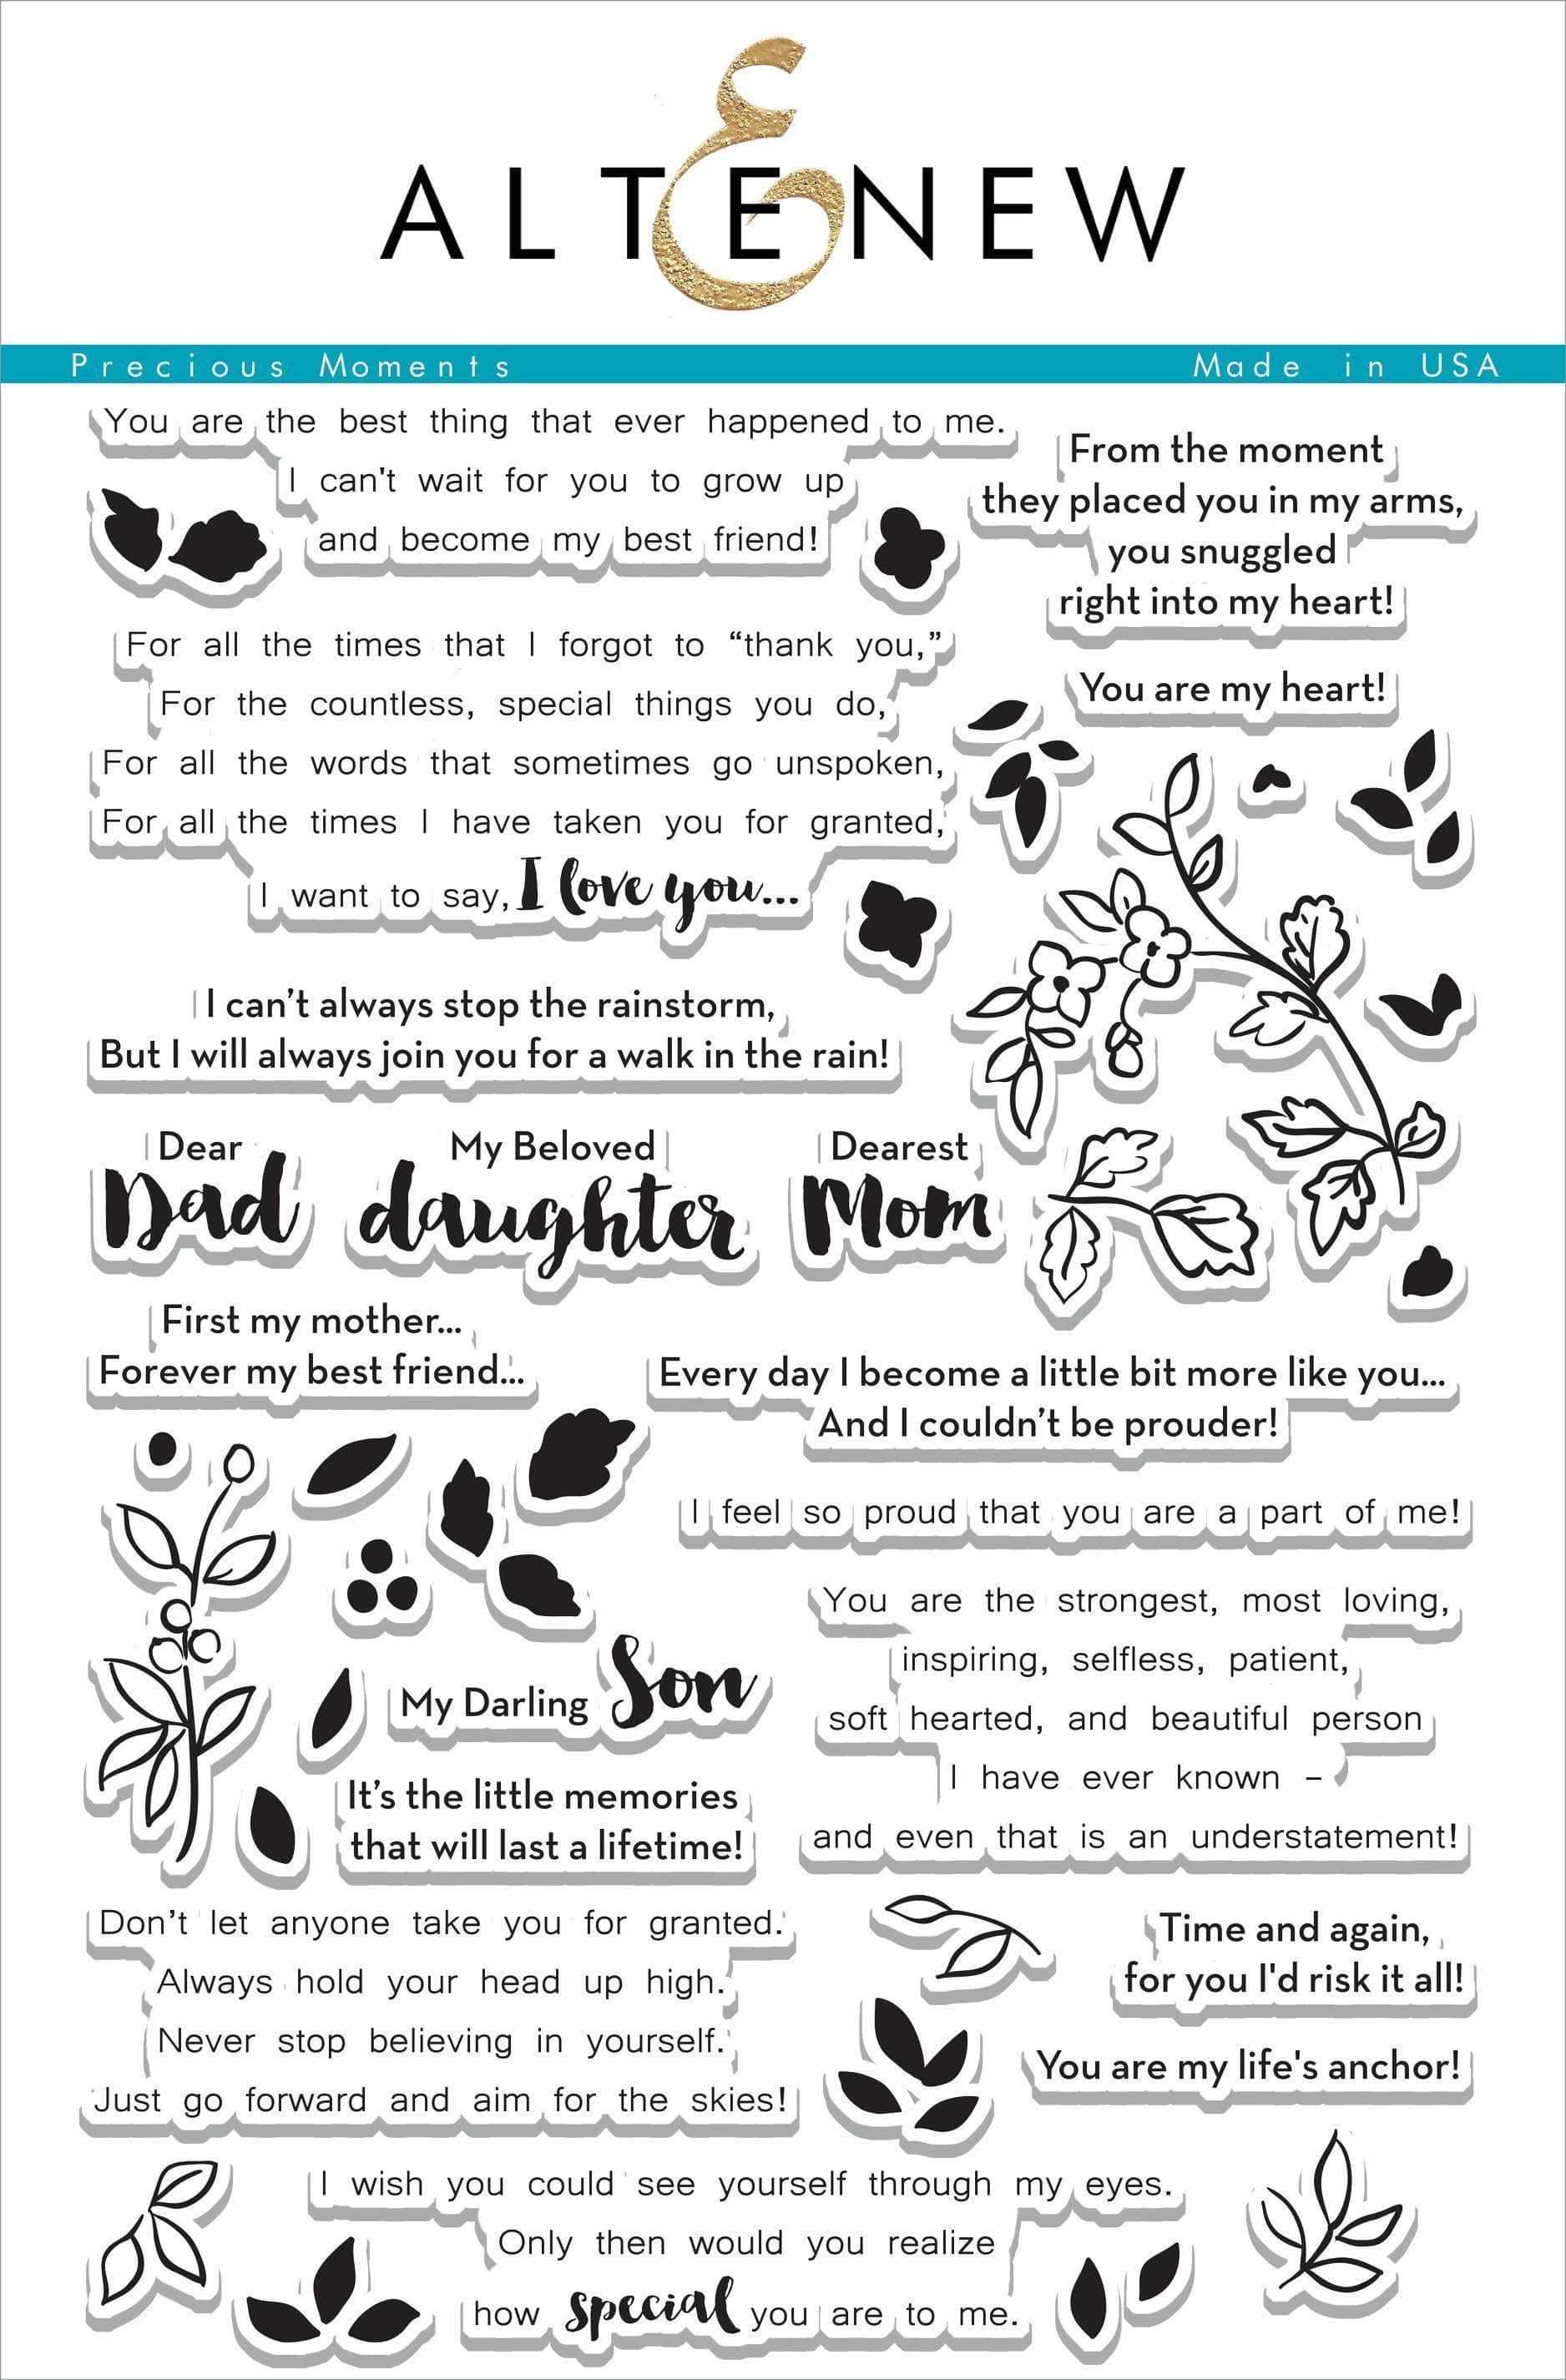 ALTENEW
Precious Moments
Made in USA
You are the best thing that ever happened to me.
I can't wait for you to grow up
and become my best friend!
From the moment
they placed you in my arms,
you snuggled
right into my heart!
For all the times that I forgot to “thank you,”
For the countless, special things you do,
For all the words that sometimes go unspoken,
For all the times I have taken you for granted,
I want to say, I love you...
You are my heart!
I can’t always stop the rainstorm,
But I will always join you for a walk in the rain!
Dear
Dad
My Beloved
daughter
Dearest
Mom
First my mother...
Forever my best friend...
Every day I become a little bit more like you...
And I couldn’t be prouder!
I feel so proud that you are a part of me!
You are the strongest, most loving,
inspiring, selfless, patient,
soft hearted, and beautiful person
I have ever known –
and even that is an understatement!
My Darling Son
It’s the little memories
that will last a lifetime!
Don’t let anyone take you for granted.
Always hold your head up high.
Never stop believing in yourself.
Just go forward and aim for the skies!
Time and again,
for you I'd risk it all!
You are my life's anchor!
I wish you could see yourself through my eyes.
Only then would you realize
how special you are to me.